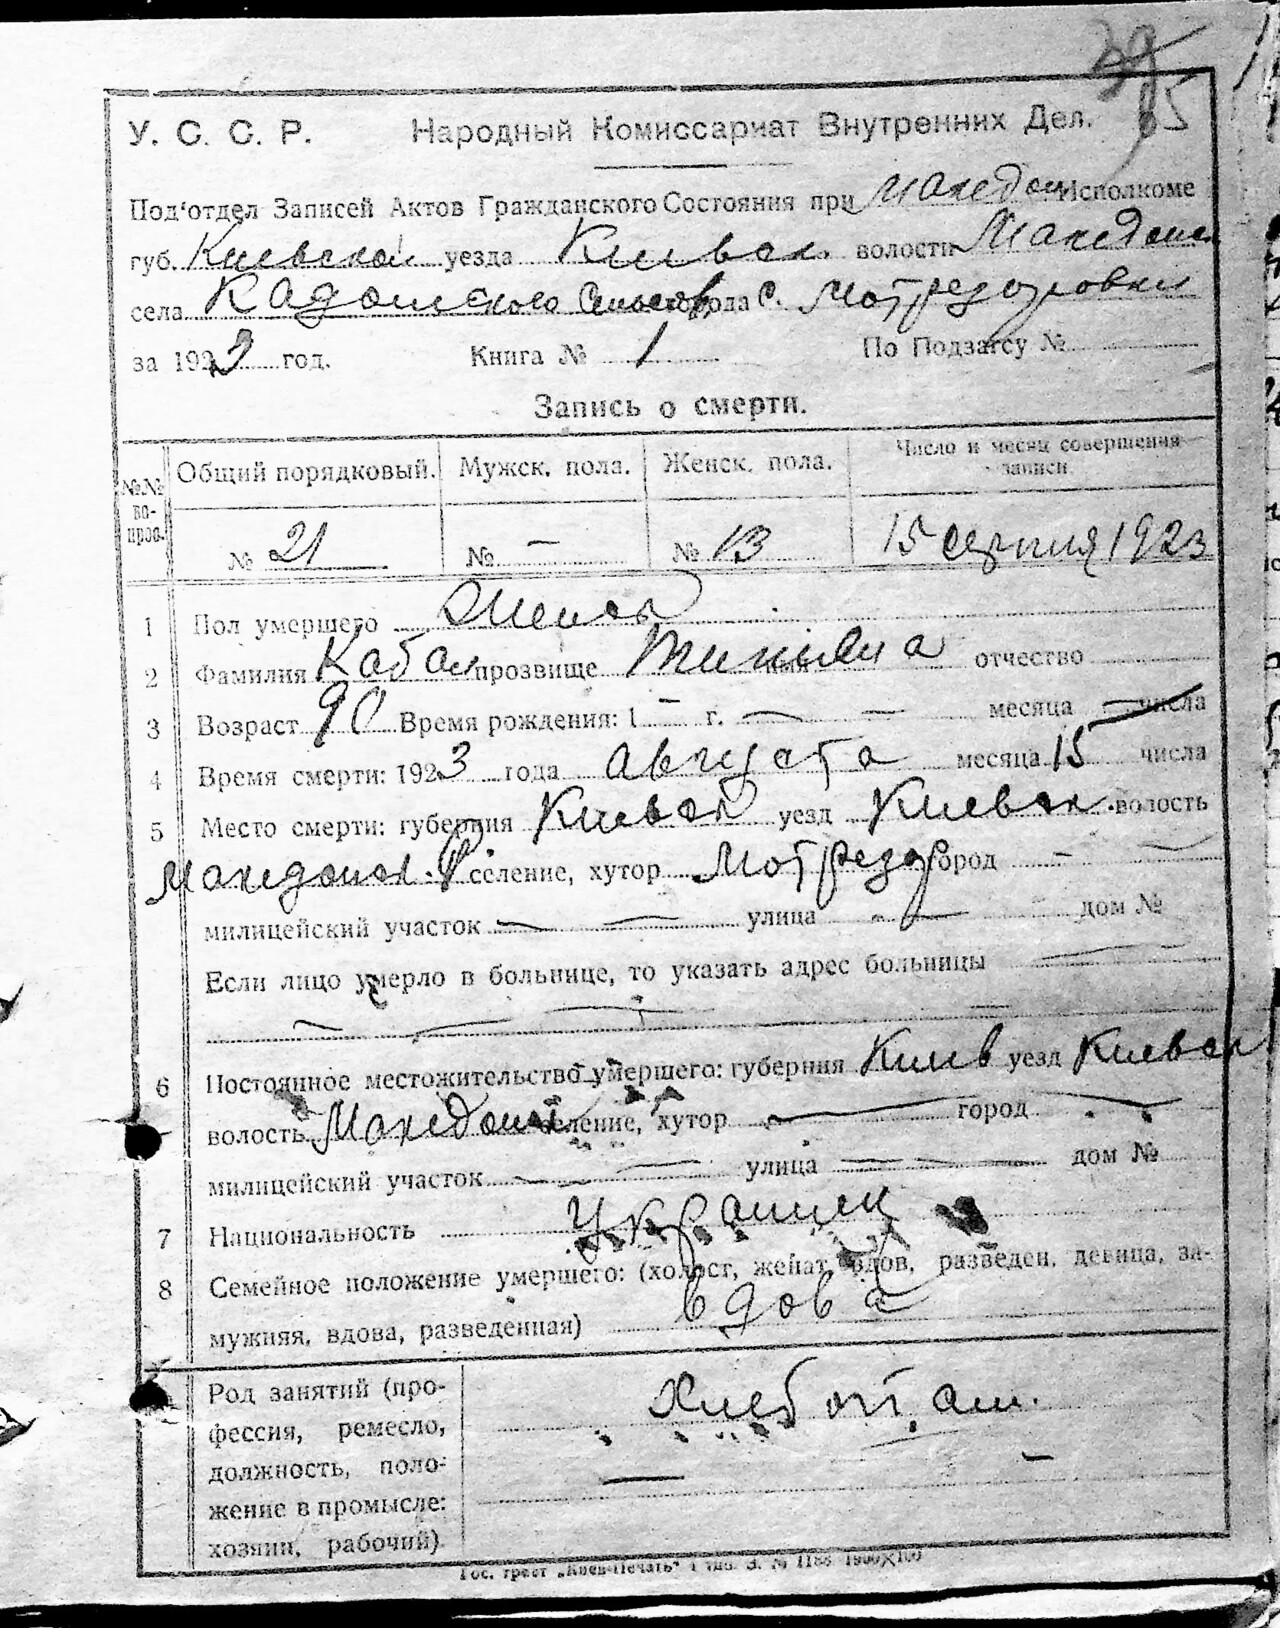 39
85
У. С. С. Р. Народный Комиссариат Внутренних Дел.
Под'отдел Записей Актов Гражданского Состояния при Македон Исполкоме
губ. Киевской уезда Киевск. волости Македонс
села Кадомского города с. Мотредоровки
за 1923 год. Книга № 1 По Подзагсу №
Запись о смерти.
№№ во-прос. Общий порядковый. Мужск. пола. Женск. пола. Число и месяц совершения записи
№ 21 № — № 13 15 серпня 1923
1 Пол умершего Женск
2 Фамилия Кабан прозвище отчество
3 Возраст 90 Время рождения: 1 — г. — — месяца — числа
4 Время смерти: 1923 года августа месяца 15 числа
5 Место смерти: губерния Киевск уезд Киевск. волость
Македонск. селение, хутор Мотредор город — —
милицейский участок — — улица — дом №
Если лицо умерло в больнице, то указать адрес больницы —
6 Постоянное местожительство умершего: губерния Киев уезд Киевск
волость Македонск селение, хутор — город
милицейский участок — — улица — — дом №
7 Национальность Украинск
8 Семейное положение умершего: (холост, женат, вдов, разведен, девица, за-
мужняя, вдова, разведенная) вдова
Род занятий (про-
фессия, ремесло,
должность, поло-
жение в промысле:
хозяин, рабочий).
Хлебопаш.
Гос. трест „Киев-Печать" 1 тип. З. № 1188 1900×100